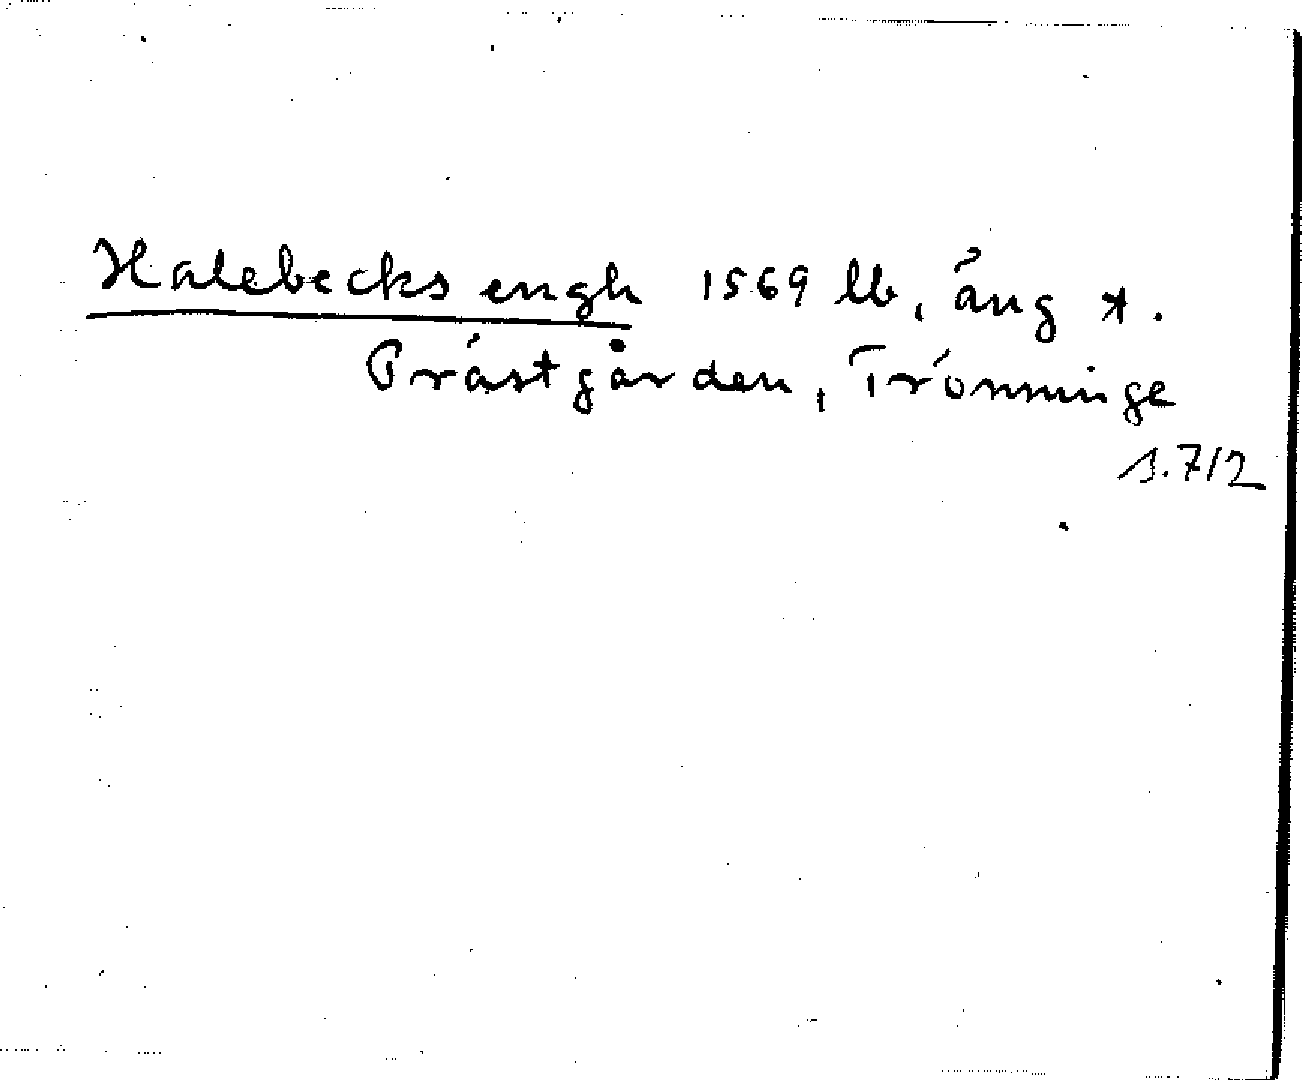 Halebecks engh 1569 lb, äng *.
Prästgården, Trönninge
s. 712